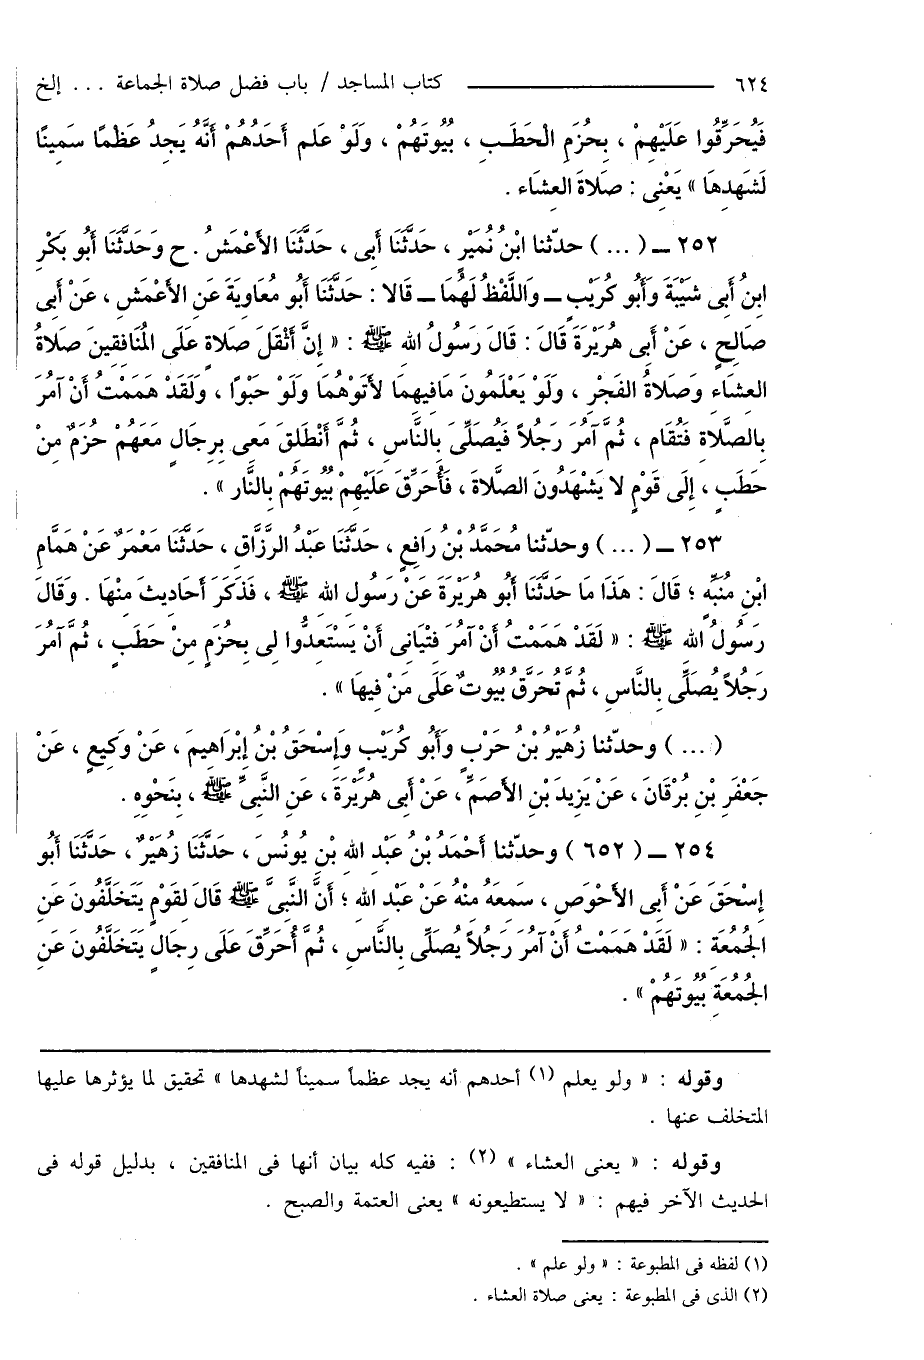 ٦٢٤ ــــــــــــــــ كتاب المساجد / باب فضل صلاة الجماعة ... إلخ
فَيُحَرِّقُوا عَلَيْهِمْ ، بِحُزَمِ الْحَطَبِ ، بُيُوتَهُمْ ، وَلَوْ عَلم أَحَدُهُمْ أَنَّهُ يَجِدُ عَظْمًا سَمِينًا
لَشَهِدَهَا » يَعْنِى : صَلاةَ العِشَاء .
٢٥٢ ــ ( ... ) حدّثنا ابْنُ نُمَيْرٍ ، حَدَّثَنَا أَبِى ، حَدَّثَنَا الأَعْمَشُ . ح وَحَدَّثَنَا أَبُو بَكْرِ
ابنُ أَبِى شَيْبَةَ وَأَبُو كُرَيْبٍ ــ وَاللَّفْظُ لَهُمَا ــ قَالا : حَدَّثَنَا أَبُو مُعَاوِيَةَ عَنِ الأَعْمَشِ ، عَنْ أَبِى
صَالِحٍ ، عَنْ أَبِى هُرَيْرَةَ قَالَ : قَالَ رَسُولُ اللهِ ﷺ : « إِنَّ أَثْقَلَ صَلاةٍ عَلَى الْمُنَافِقِينَ صَلاةُ
العشَاءِ وَصَلاةُ الفَجْرِ ، وَلَوْ يَعْلَمُونَ مَافِيهِمَا لأَتَوْهُمَا وَلَوْ حَبْوًا ، وَلَقَدْ هَمَمْتُ أَنْ آمُرَ
بِالصَّلاةِ فَتُقَام ، ثُمَّ آمُرَ رَجُلاً فَيُصَلِّىَ بِالنَّاسِ ، ثُمَّ أَنْطَلِقَ مَعِى بِرِجَالٍ مَعَهُمْ حُزَمٌ مِنْ
حَطَبٍ ، إِلَى قَوْمٍ لا يَشْهَدُونَ الصَّلاةَ ، فَأُحَرِّقَ عَلَيْهِمْ بُيُوتَهُمْ بِالنَّارِ » .
٢٥٣ ــ ( ... ) وحدّثنا مُحَمَّدُ بْنُ رَافِعٍ ، حَدَّثَنَا عَبْدُ الرزَّاقِ ، حَدَّثَنَا مَعْمَرٌ عَنْ هَمَّامِ
ابْنِ مُنَبِّهٍ ؛ قَالَ : هَذَا مَا حَدَّثَنَا أَبُو هُرَيْرَةَ عَنْ رَسُولِ اللهِ ﷺ ، فَذَكَرَ أَحَادِيثَ مِنْهَا . وَقَالَ
رَسُولُ اللهِ ﷺ : « لَقَدْ هَمَمْتُ أَنْ آمُرَ فِتْيَانِى أَنْ يَسْتَعِدُّوا لِى بِحُزَمٍ مِنْ حَطَبٍ ، ثُمَّ آمُرَ
رَجُلاً يُصَلِّى بِالنَّاسِ ، ثُمَّ تُحَرَّقُ بُيُوتٌ عَلَى مَنْ فِيهَا » .
( ... ) وحدّثنا زُهَيْرُ بْنُ حَرْبٍ وَأَبُو كُرَيْبٍ وَإِسْحَقُ بْنُ إِبْرَاهِيمَ ، عَنْ وَكِيعٍ ، عَنْ
جَعْفَرِ بْنِ بُرْقَانَ ، عَنْ يَزِيدَ بْنِ الأَصَمِّ ، عَنْ أَبِى هُرَيْرَةَ ، عَنِ النَّبِىِّ ﷺ ، بِنَحْوِهِ .
٢٥٤ ــ ( ٦٥٢ ) وحدّثنا أَحْمَدُ بْنُ عَبْدِ اللهِ بْنِ يُونُسَ ، حَدَّثَنَا زُهَيْرٌ ، حَدَّثَنَا أَبُو
إِسْحَقَ عَنْ أَبِى الأَحْوَصِ ، سَمِعَهُ مِنْهُ عَنْ عَبْدِ اللهِ ؛ أَنَّ النَّبِىَّ ﷺ قَالَ لِقَوْمٍ يَتَخَلَّفُونَ عَنِ
الجُمُعَةِ : « لَقَدْ هَمَمْتُ أَنْ آمُرَ رَجُلاً يُصَلِّى بِالنَّاسِ ، ثُمَّ أُحَرِّقَ عَلَى رِجَالٍ يَتَخَلَّفُونَ عَنِ
الجُمُعَةِ بُيُوتَهُمْ » .
وقوله : « ولو يعلم (١) أحدهم أنه يجد عظماً سميناً لشهدها » تحقيق لما يؤثرها عليها
المتخلف عنها .
وقوله : « يعنى العشاء » (٢) : ففيه كله بيان أنها فى المنافقين ، بدليل قوله فى
الحديث الآخر فيهم : « لا يستطيعونه » يعنى العتمة والصبح .
(١) لفظه فى المطبوعة : « ولو علم » .
(٢) الذى فى المطبوعة : يعنى صلاة العشاء .